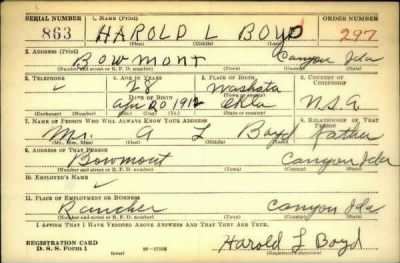 SERIAL NUMBER 1. NAME (Print) ORDER NUMBER
863 HAROLD L BOYD 297
(First) (Middle) (Last)
2. ADDRESS (Print)
Bowmont Canyon Ida
(Number and street or R. F. D. number) (Town) (County) (State)
3. TELEPHONE 4. AGE IN YEARS 5. PLACE OF BIRTH 6. COUNTRY OF CITIZENSHIP
✓ 28 Washata
DATE OF BIRTH
Apr 20 1912 Okla U.S.A
(Exchange) (Number) (Mo.) (Day) (Yr.) (State or country)
7. NAME OF PERSON WHO WILL ALWAYS KNOW YOUR ADDRESS 8. RELATIONSHIP OF THAT PERSON
Mr. A L Boyd Father
(Mr., Mrs., Miss) (First) (Middle) (Last)
9. ADDRESS OF THAT PERSON
Bowmont Canyon Ida
(Number and street or R. F. D. number) (Town) (County) (State)
10. EMPLOYER'S NAME
✓
11. PLACE OF EMPLOYMENT OR BUSINESS
Rancher Canyon Ida
(Number and street or R. F. D. number) (Town) (County) (State)
I AFFIRM THAT I HAVE VERIFIED ABOVE ANSWERS AND THAT THEY ARE TRUE.
REGISTRATION CARD
D. S. S. Form 1 Harold L Boyd